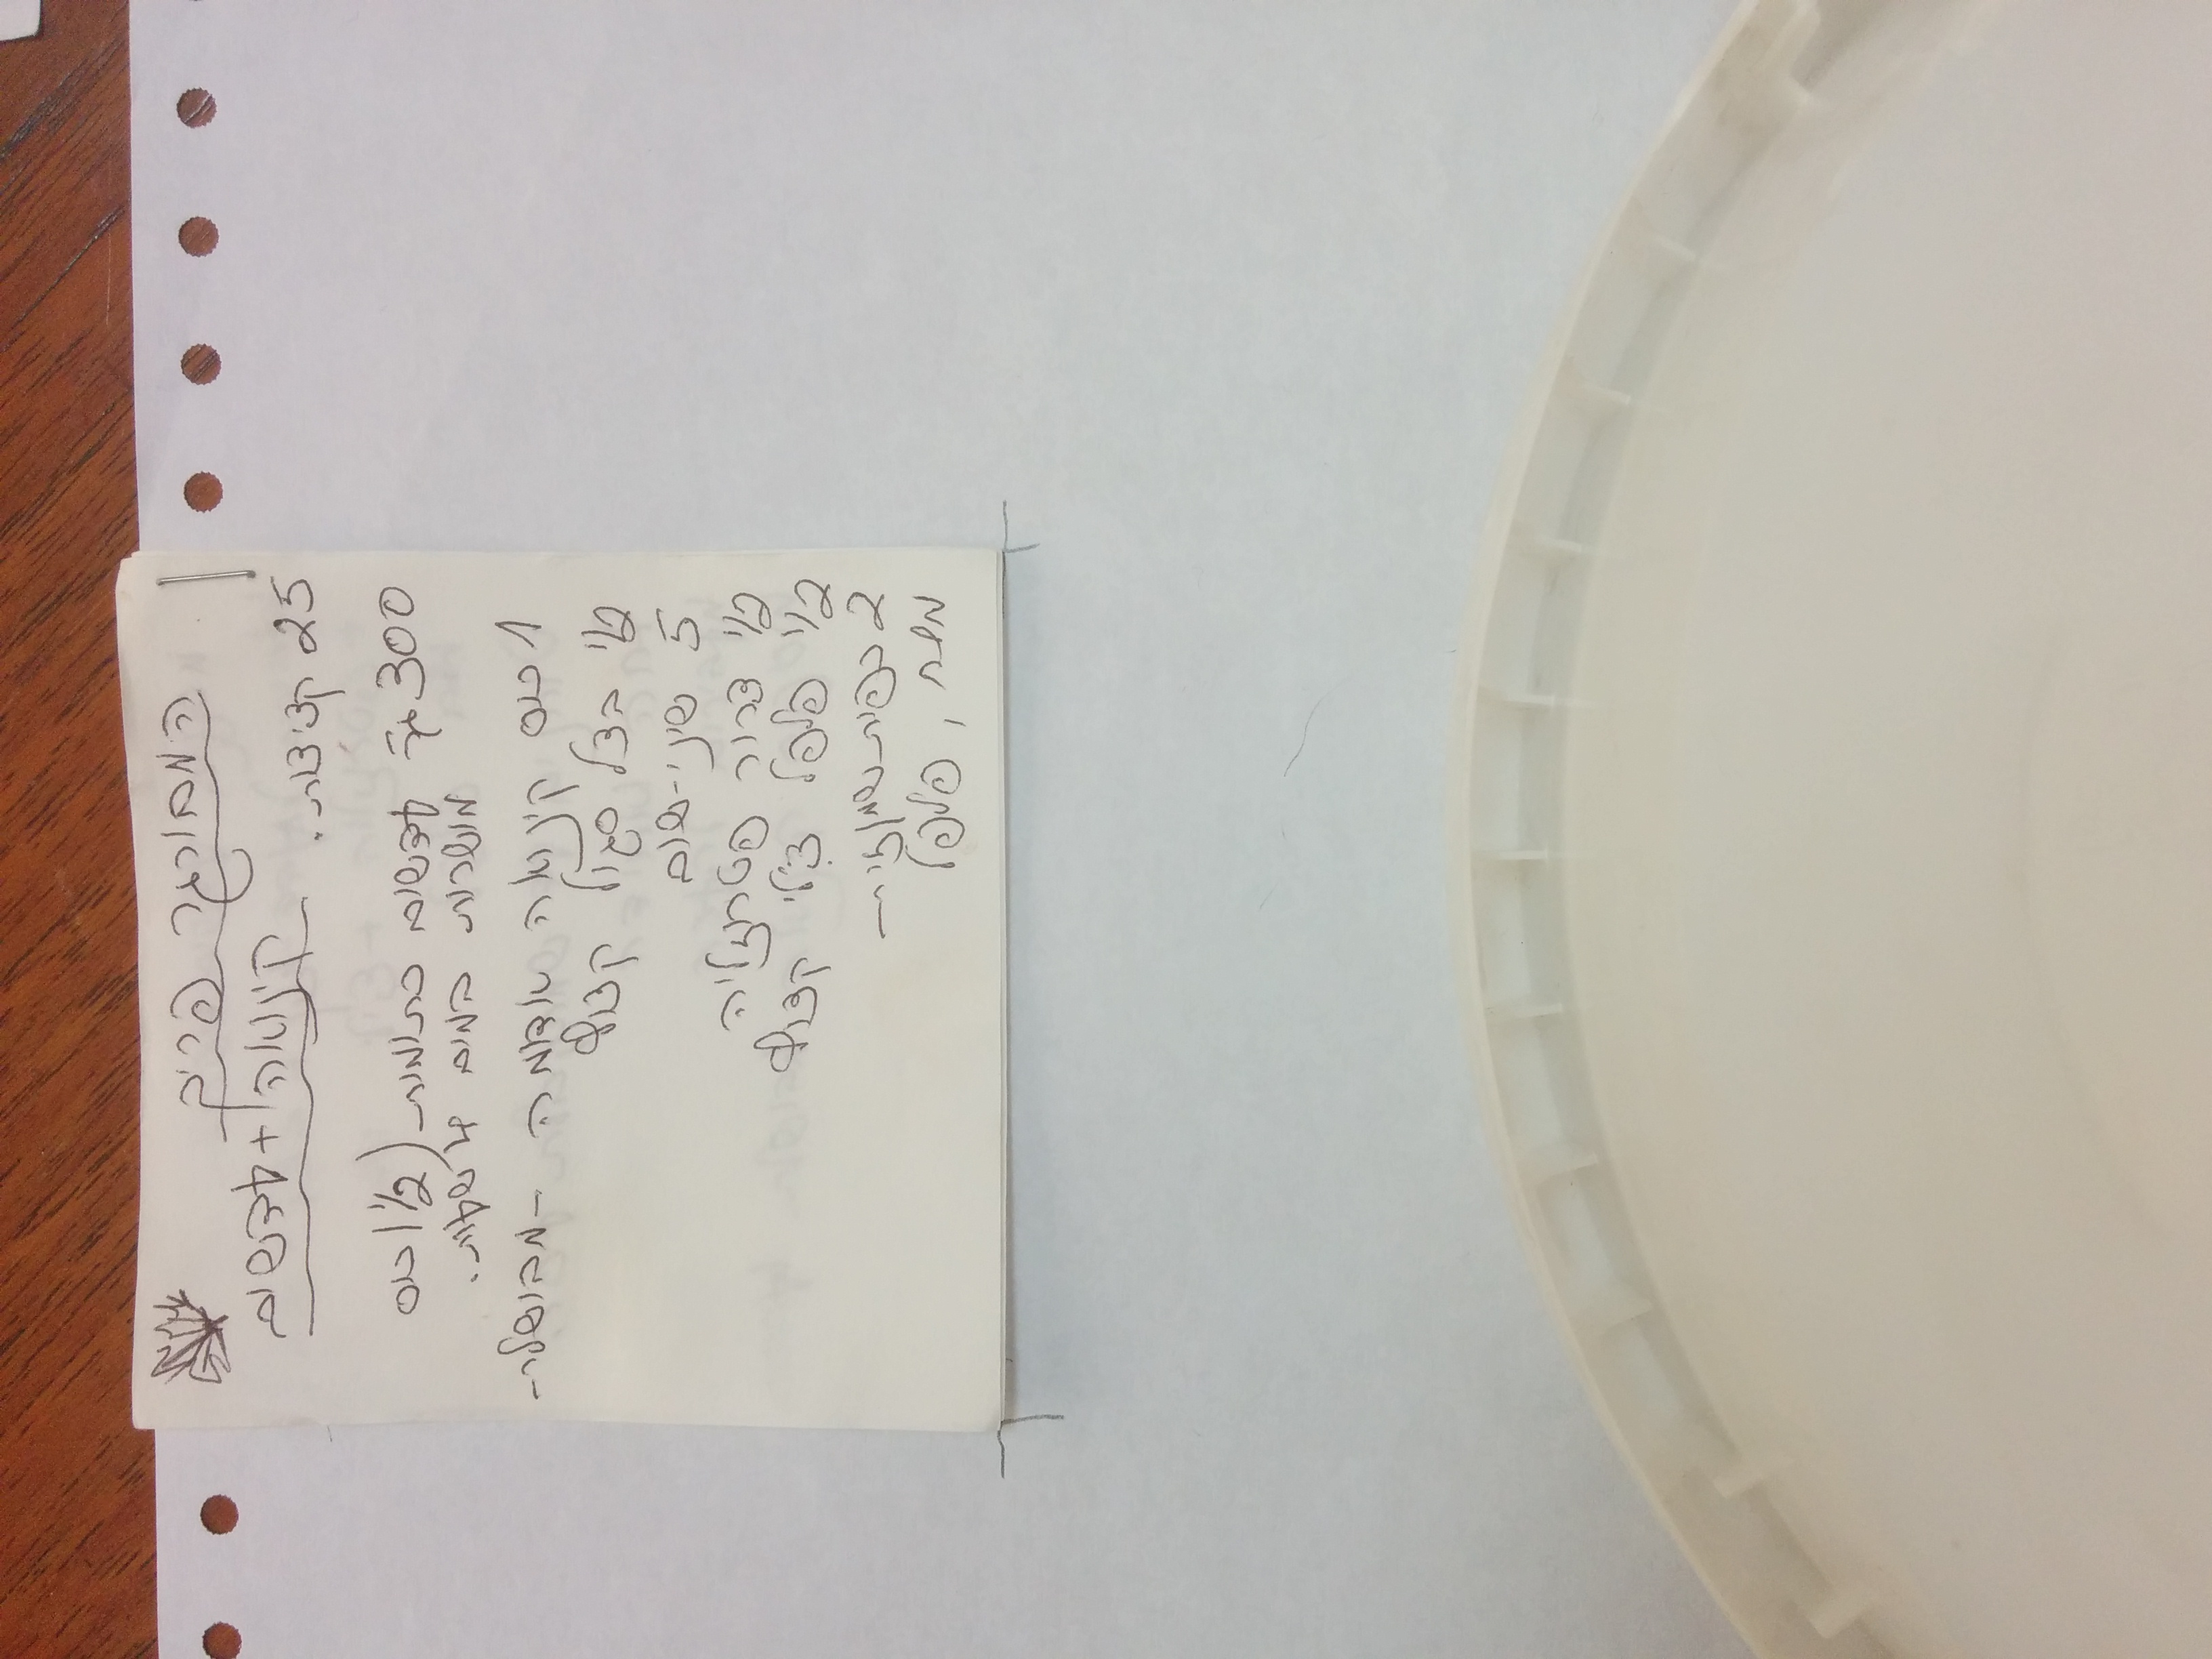 המבורגר פריך
קינואה + עדשים
25 קציצות.
300 גר' עדשים כתומות (1/2 1 כוס
מושרות במים 4 שעות.
1 כוס קינואה אדומה - מבושלת -
1/2 בצל סגול קצוץ
5 שיני-שום
1/2 צרור פטרוזליה
1/2 פלפל צ'ילי קצוץ
2 כפית שמן זית
מלח, פלפל